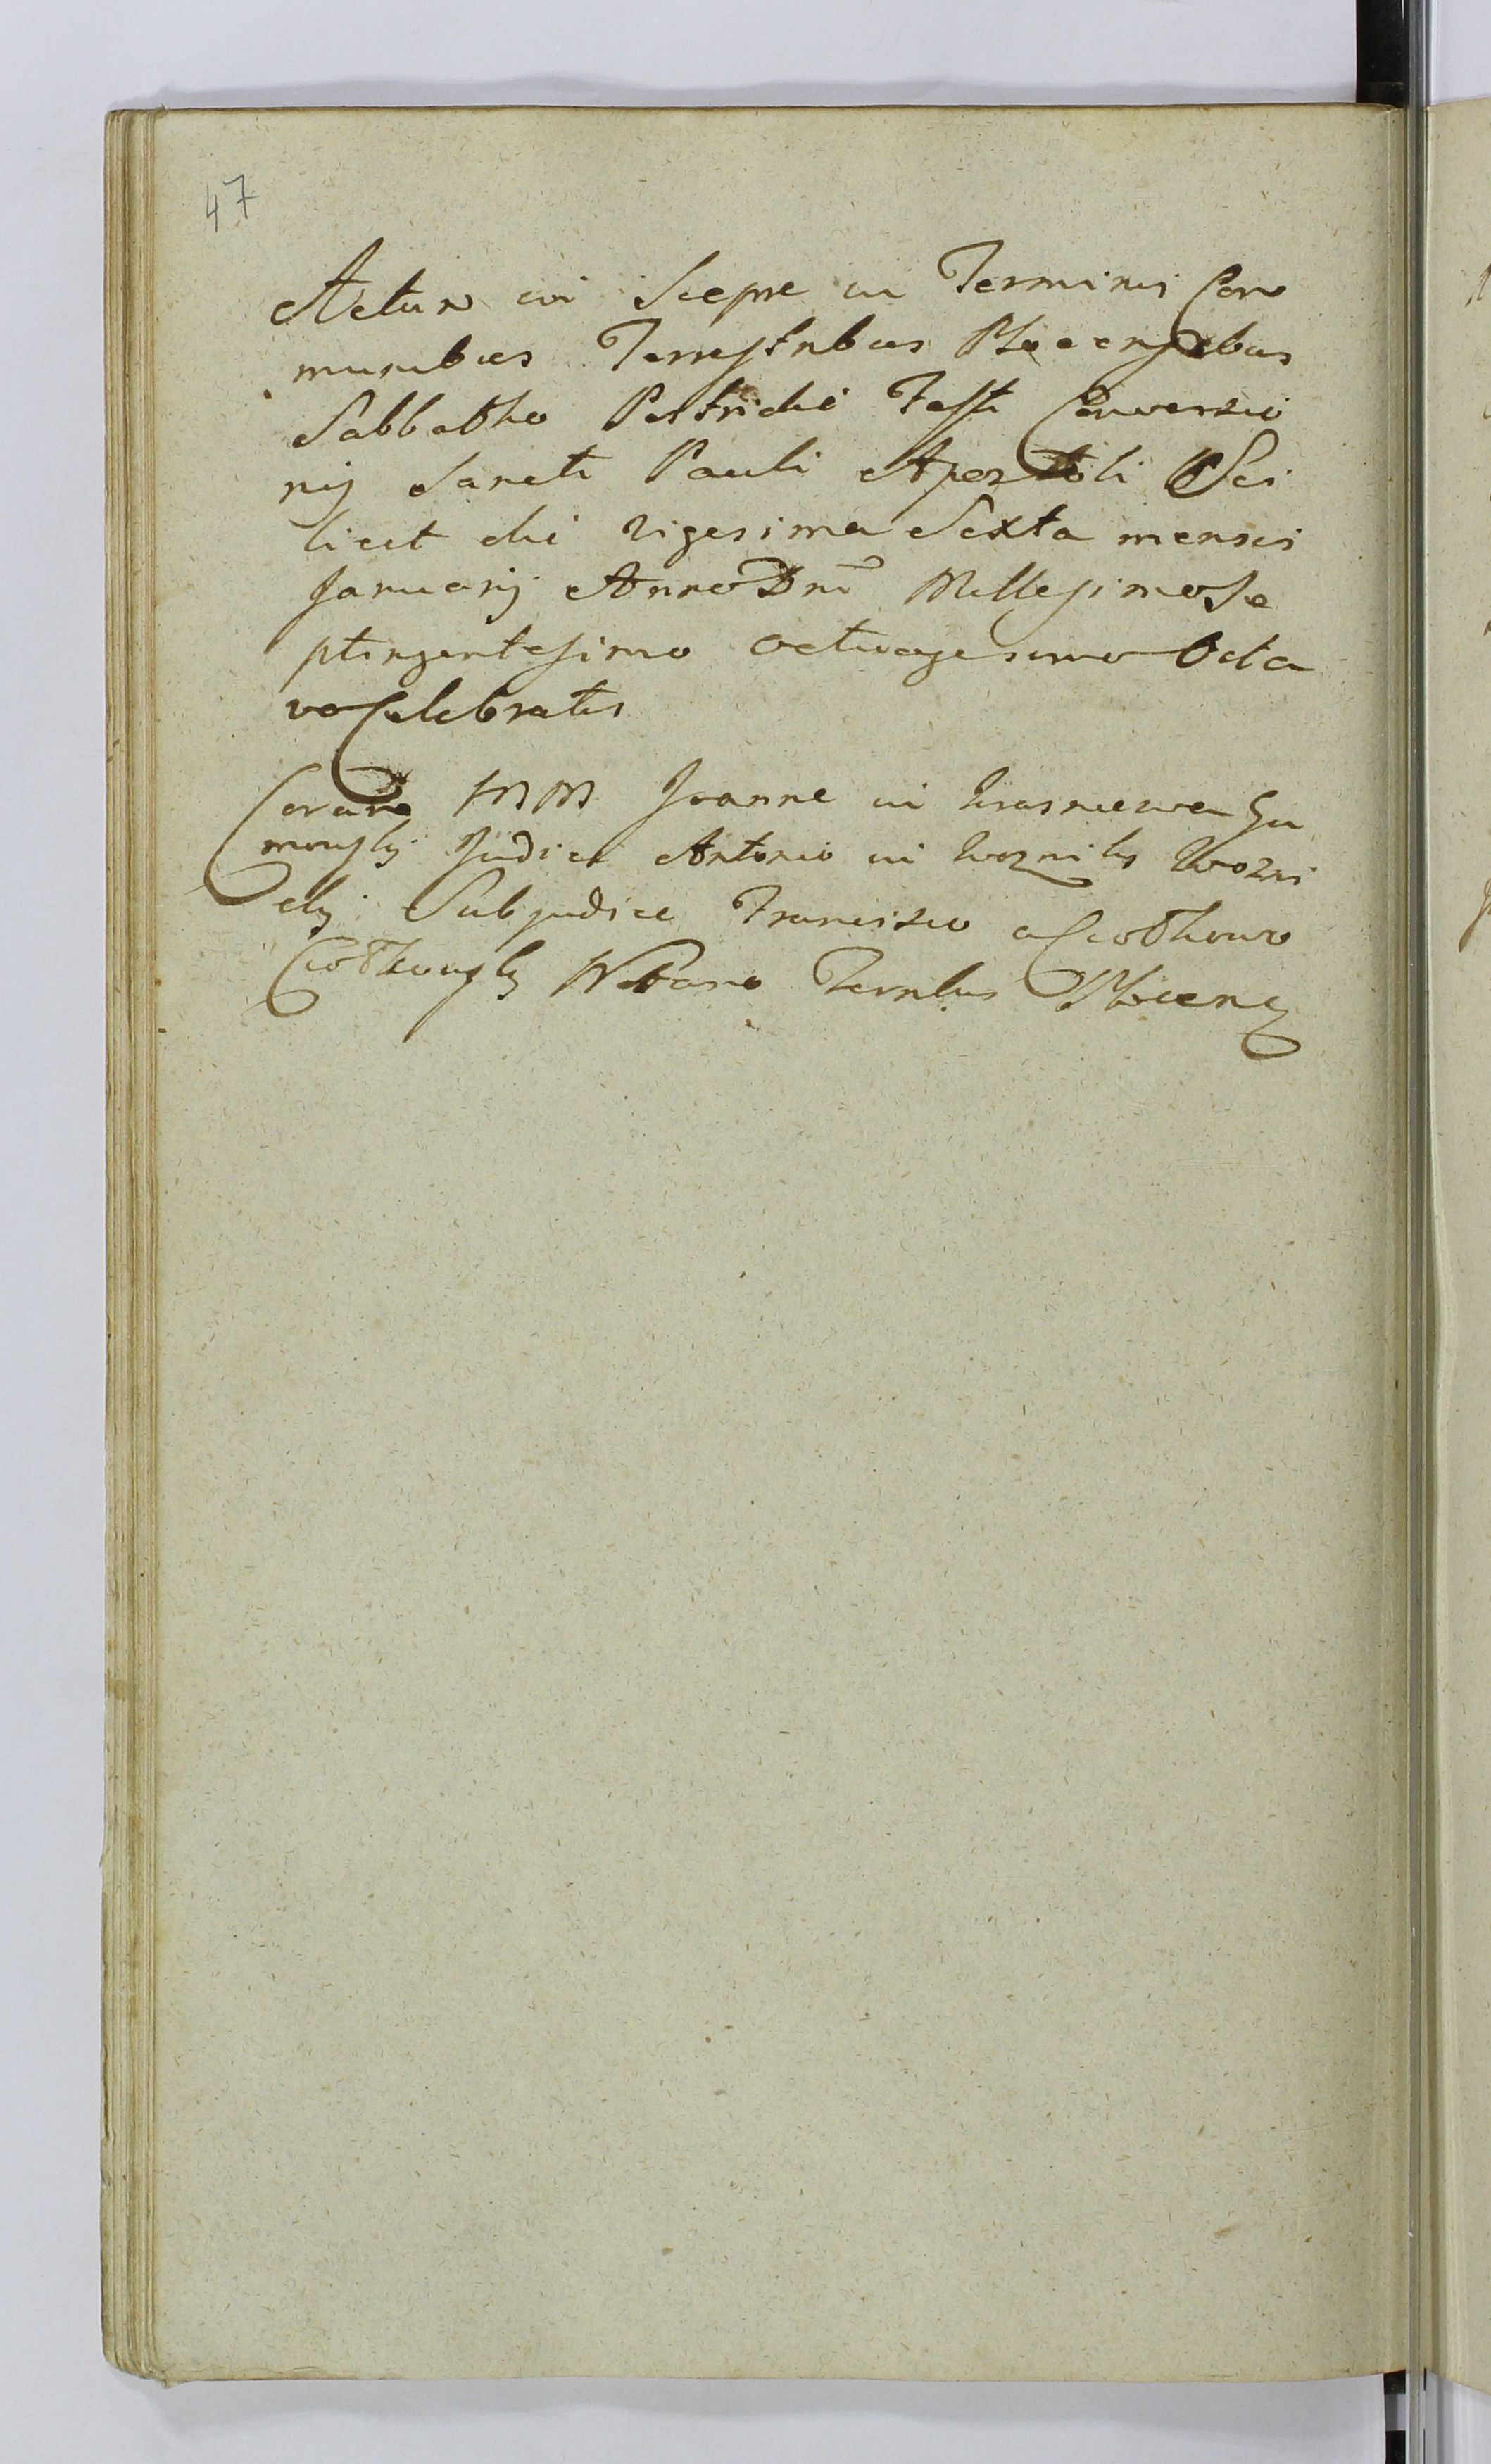 47
Actum in Sierpc in Terminis Com
munibus Terrestribus Plocensibus
Sabbatho Postridie Festi Conversio
nis Sancti Pauli Apostoli Sci
licet die Vigesima Sexta mensis
Januarij Anno Dni Millesimo Se
ptingentesimo Octuagesimo Octa
vo Celebratis
Coram MM Joanne in Krasniewa
Judice Antonio in Wozniki Wozni
cki Subjudice Francisco a Ciothowo
Ciothowski Notario Terribus Plocens